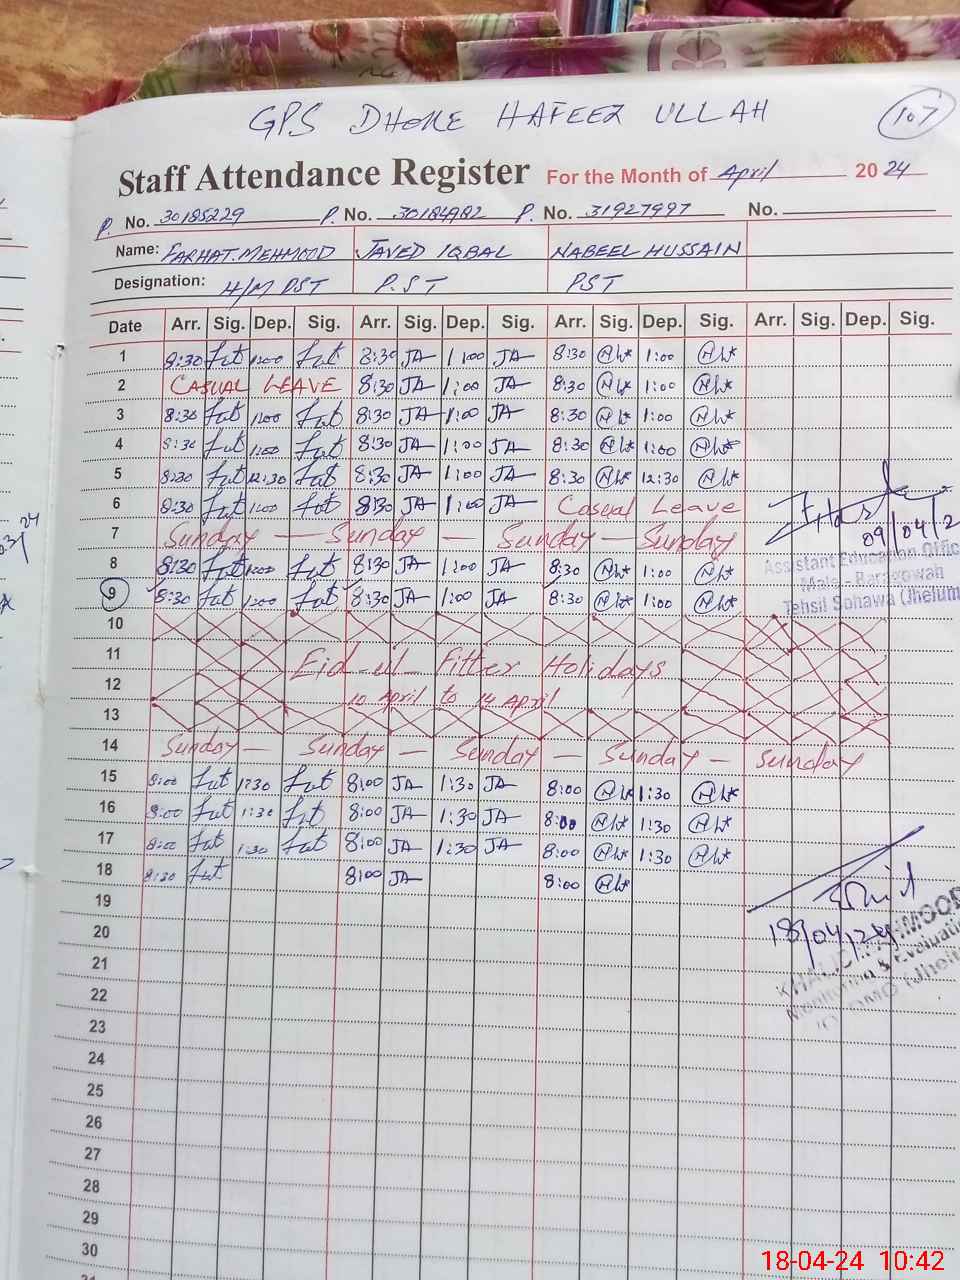 GPS DHOKE HAFEEZ ULLAH
107
Staff Attendance Register For the Month of April 2024
P. No. 30185229 P. No. 30184982 P. No. 31927997 No.
Name: FARHAT.MEHMOOD JAVED IQBAL NABEEL HUSSAIN
Designation: H/M PST P.ST PST
Date Arr. Sig. Dep. Sig. Arr. Sig. Dep. Sig. Arr. Sig. Dep. Sig. Arr. Sig. Dep. Sig.
1 8:30 1:00 8:30 JA 1:00 JA 8:30 1:00
2 CASUAL LEAVE 8:30 JA 1:00 JA 8:30 1:00
3 8:30 1:00 8:30 JA 1:00 JA 8:30 1:00
4 8:30 1:00 8:30 JA 1:00 JA 8:30 1:00
5 8:30 12:30 8:30 JA 1:00 JA 8:30 12:30
6 8:30 1:00 8:30 JA 1:00 JA Casual Leave
7 Sunday — Sunday — Sunday — Sunday
8 8:30 1:00 8:30 JA 1:00 JA 8:30 1:00
9 8:30 1:00 8:30 JA 1:00 JA 8:30 1:00
09/04/2
Assistant Education Offic
Male - Baragowah
Tehsil Sohawa (Jhelum
10
11 Eid-ul-Fitter Holidays
12 10 April to 14 April
13
14 Sunday — Sunday — Sunday — Sunday — Sunday
15 8:00 1:30 8:00 JA 1:30 JA 8:00 1:30
16 8:00 1:30 8:00 JA 1:30 JA 8:00 1:30
17 8:00 1:30 8:00 JA 1:30 JA 8:00 1:30
18 8:30 8:00 JA 8:00
19
20
18/04/24
Monitoring & Evaluatio
21
22
23
24
25
26
27
28
29
30
18-04-24 10:42